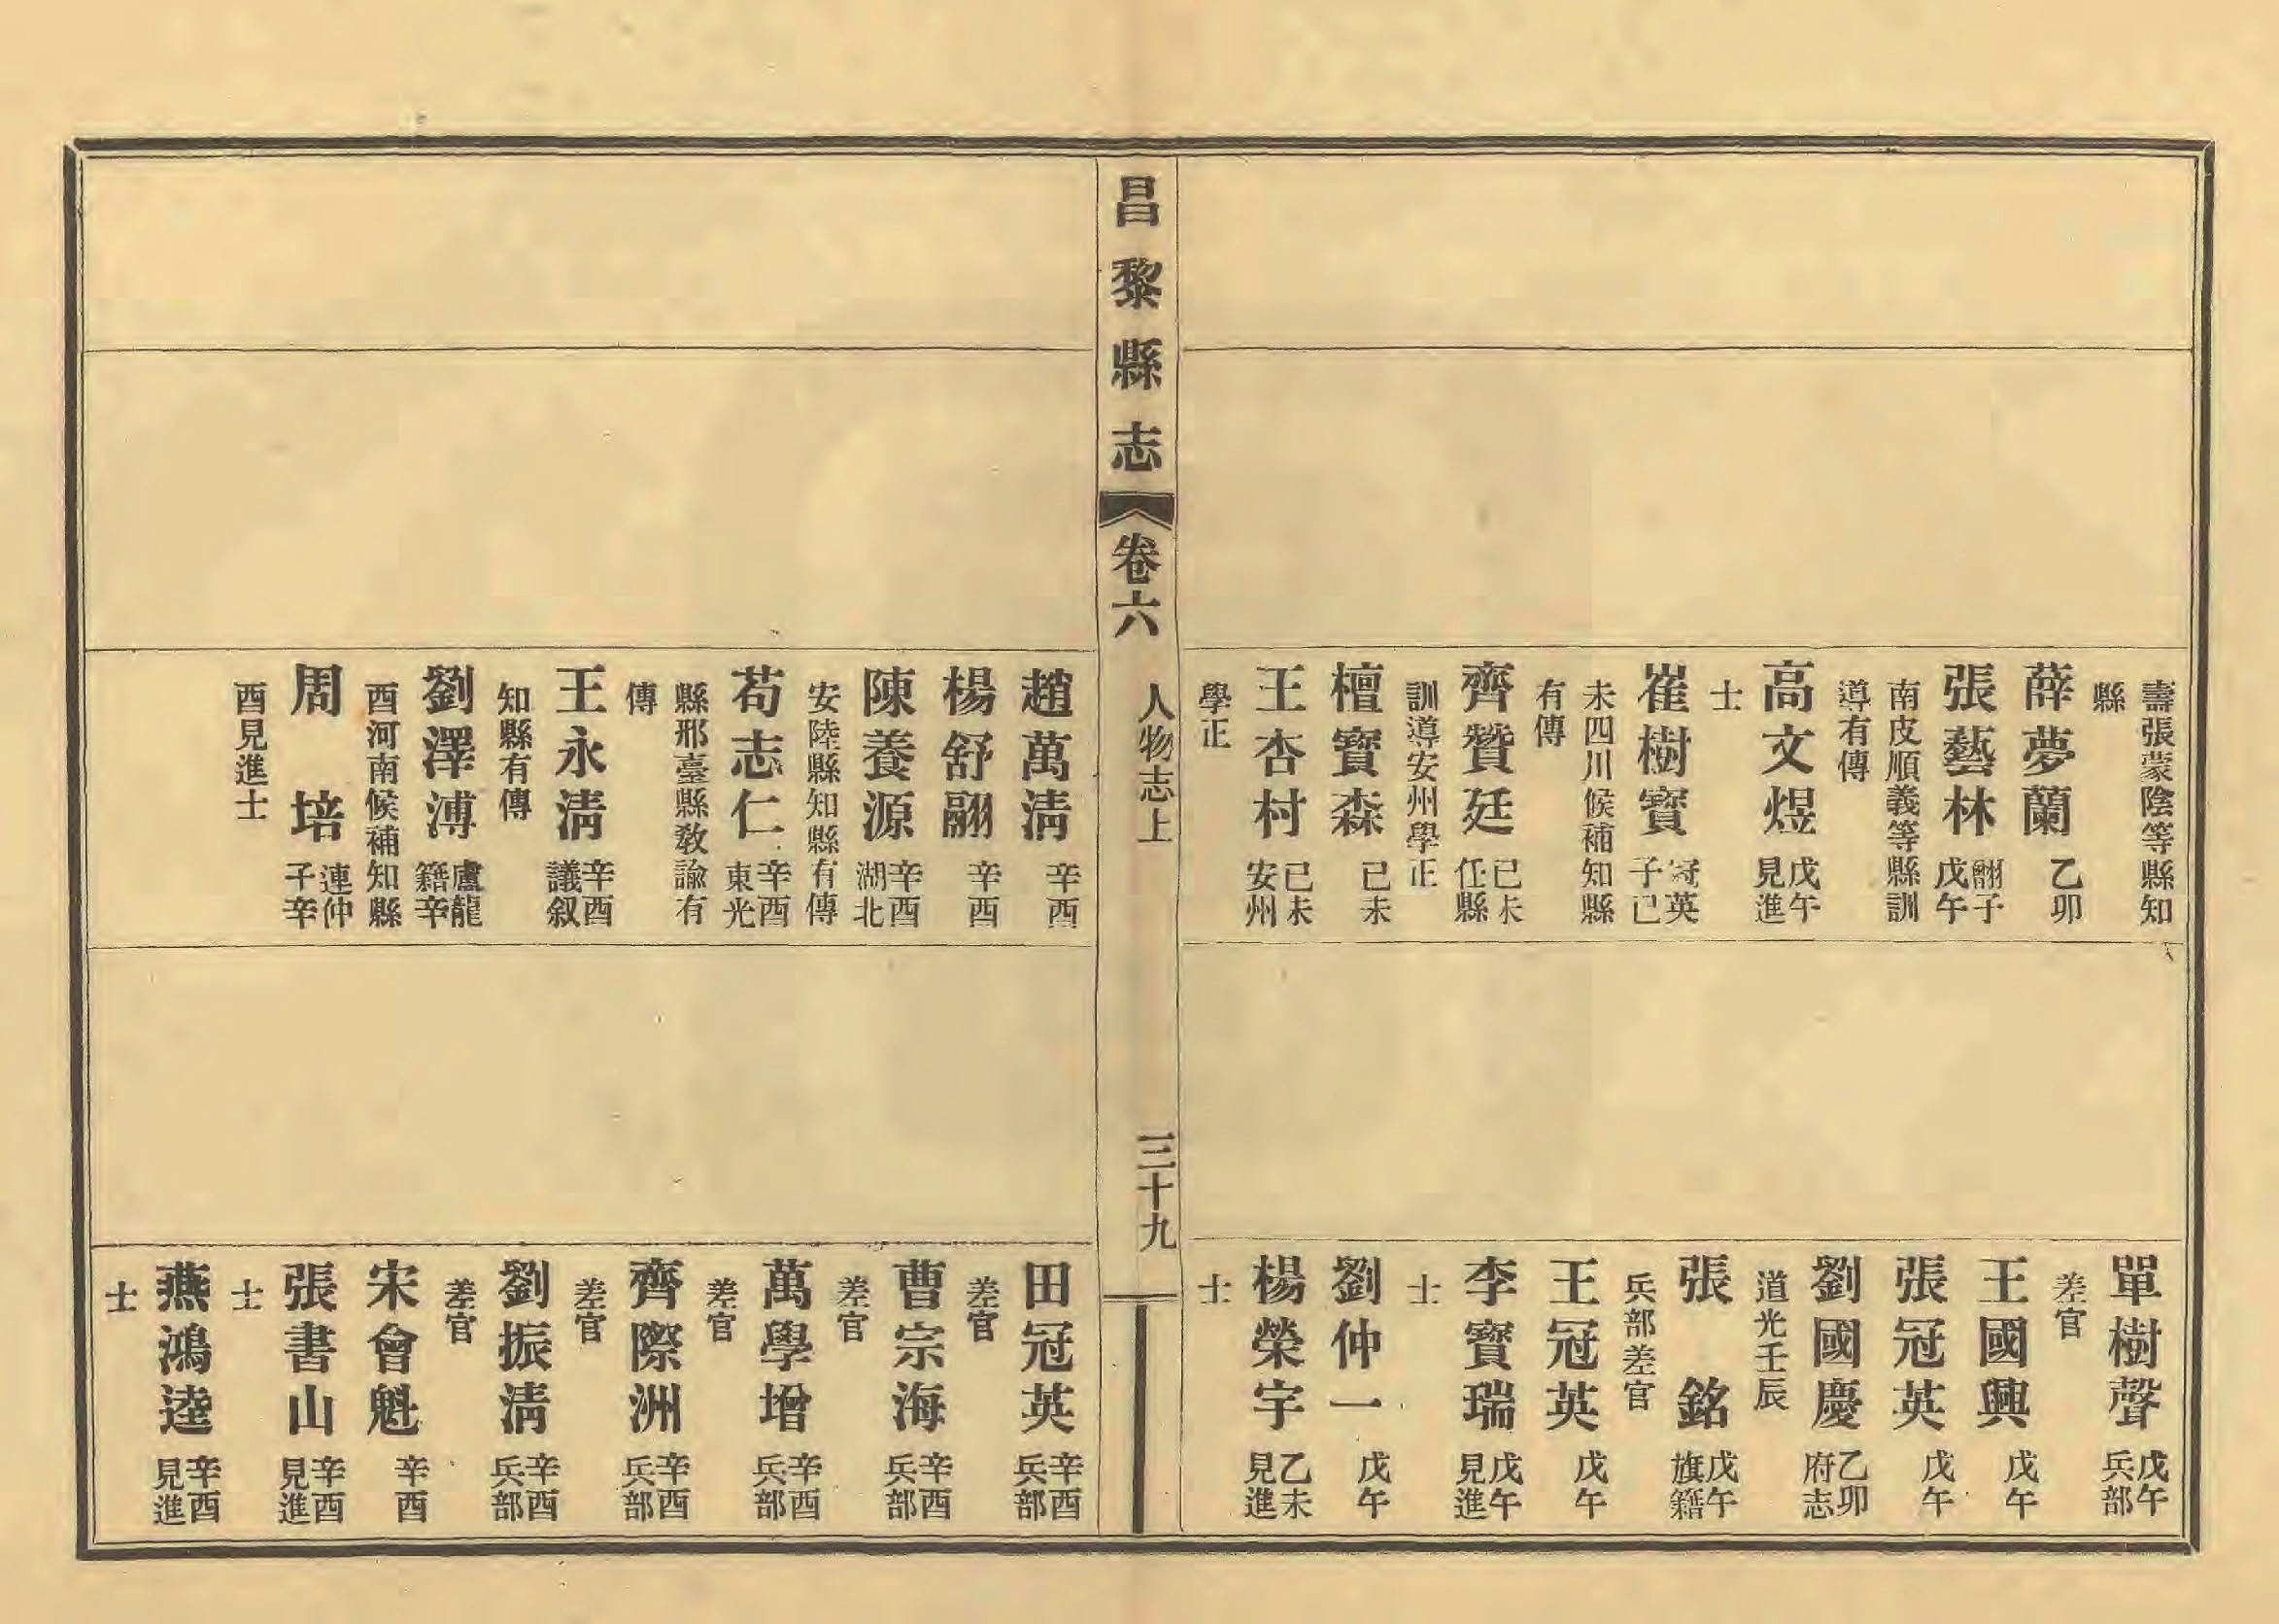 壽張蒙陰等縣知
縣
薛夢蘭 乙卯
張藝林 翮子戊午
南皮順義等縣訓
導有傳
高文煜 戊午見進
士
崔樹寶 冠英子己
未四川候補知縣
有傳
齊贊廷 己未任縣
訓導安州學正
檀寶森 己未
王杏村 己未安州
學正
單樹聲 戊午兵部
差官
王國興 戊午
張冠英 戊午
劉國慶 乙卯府志
道光壬辰
張銘 戊午旗籍
兵部差官
王冠英 戊午
李寶瑞 戊午見進
士
劉仲一 戊午
楊榮宇 乙未見進
士
昌黎縣志 卷六 人物志上 三十九
趙萬清 辛酉
楊舒翮 辛酉
陳養源 辛酉湖北
安陸縣知縣有傳
苟志仁 辛酉東光
縣邢臺縣教諭有
傳
王永清 辛酉議叙
知縣有傳
劉澤溥 盧龍籍辛
酉河南候補知縣
周培 連仲子辛
酉見進士
田冠英 辛酉兵部
差官
曹宗海 辛酉兵部
差官
萬學增 辛酉兵部
差官
齊際洲 辛酉兵部
差官
劉振清 辛酉兵部
差官
宋會魁 辛酉
張書山 辛酉見進
士
燕鴻逵 辛酉見進
士